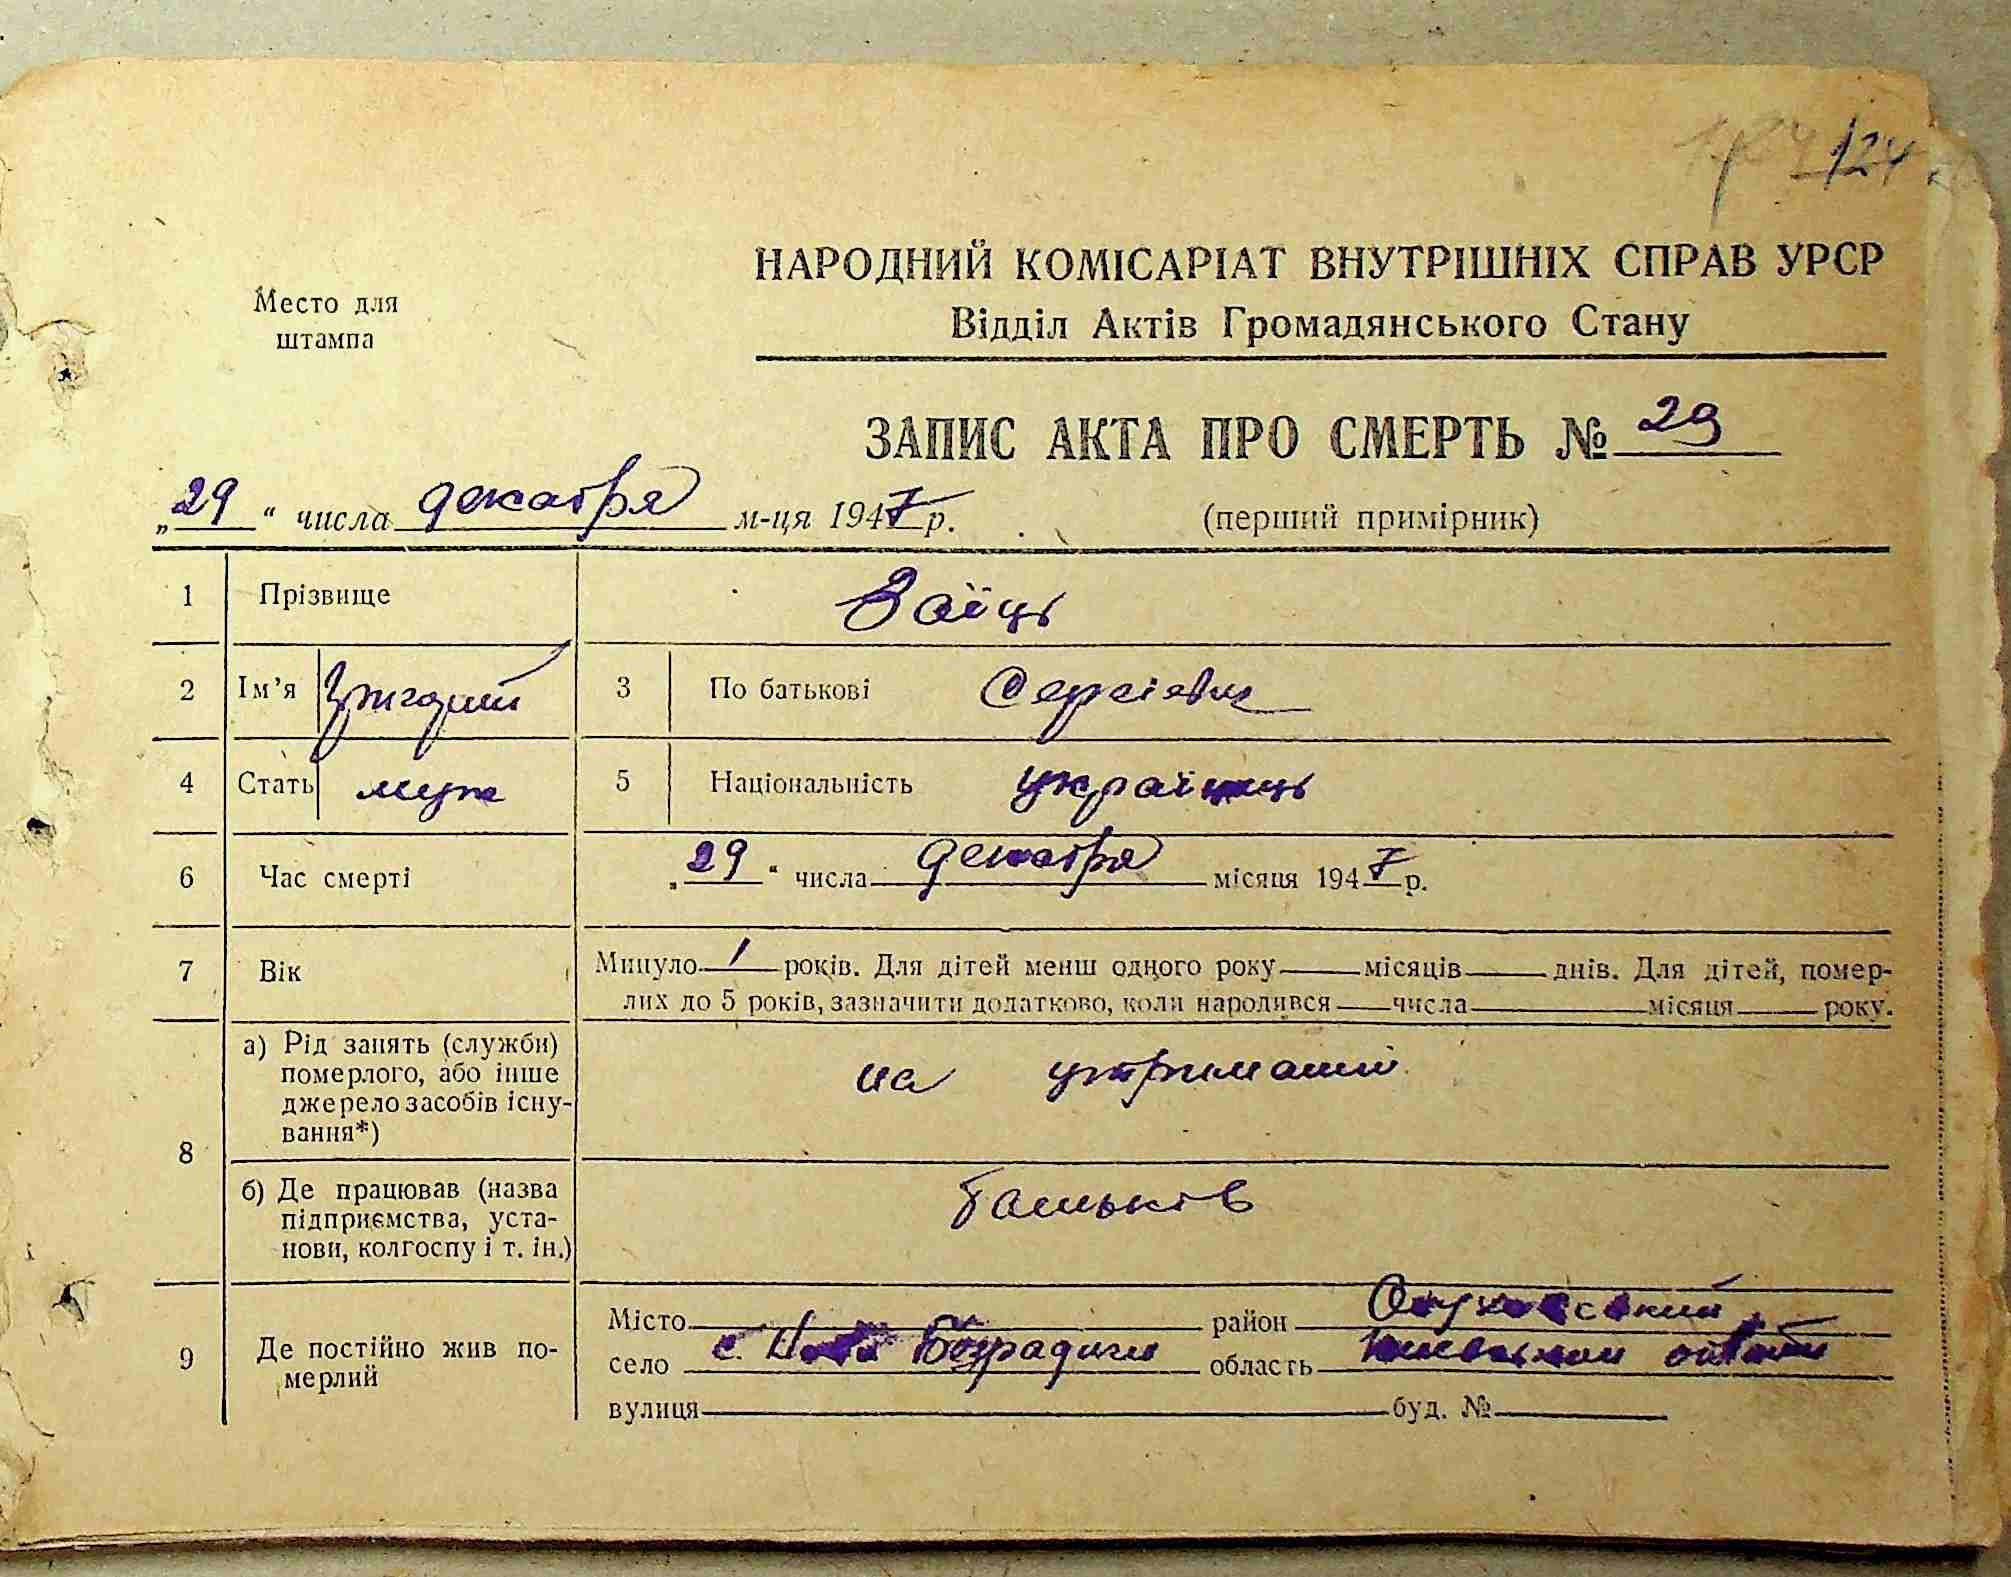 124
НАРОДНИЙ КОМІСАРІАТ ВНУТРІШНІХ СПРАВ УРСР
Відділ Актів Громадянського Стану
Место для
штампа
ЗАПИС АКТА ПРО СМЕРТЬ № 29
„29“ числа декабря м-ця 1947 р.
(перший примірник)
1 Прізвище Заїць
2 Ім’я Григорий 3 По батькові Сергіевич
4 Стать муж 5 Національність українець
6 Час смерті „29“ числа декабря місяця 1947 р.
7 Вік Минуло 1 років. Для дітей менш одного року місяців днів. Для дітей, помер-
лих до 5 років, зазначити додатково, коли народився числа місяця року.
8 а) Рід занять (служби)
померлого, або інше
джерело засобів існу-
вання*)
на утриманні
б) Де працював (назва
підприємства, уста-
нови, колгоспу і т. ін.)
батьків
9 Де постійно жив по-
мерлий
Місто район Обуховський
село с. Нові Безрадичи область
вулиця буд. №